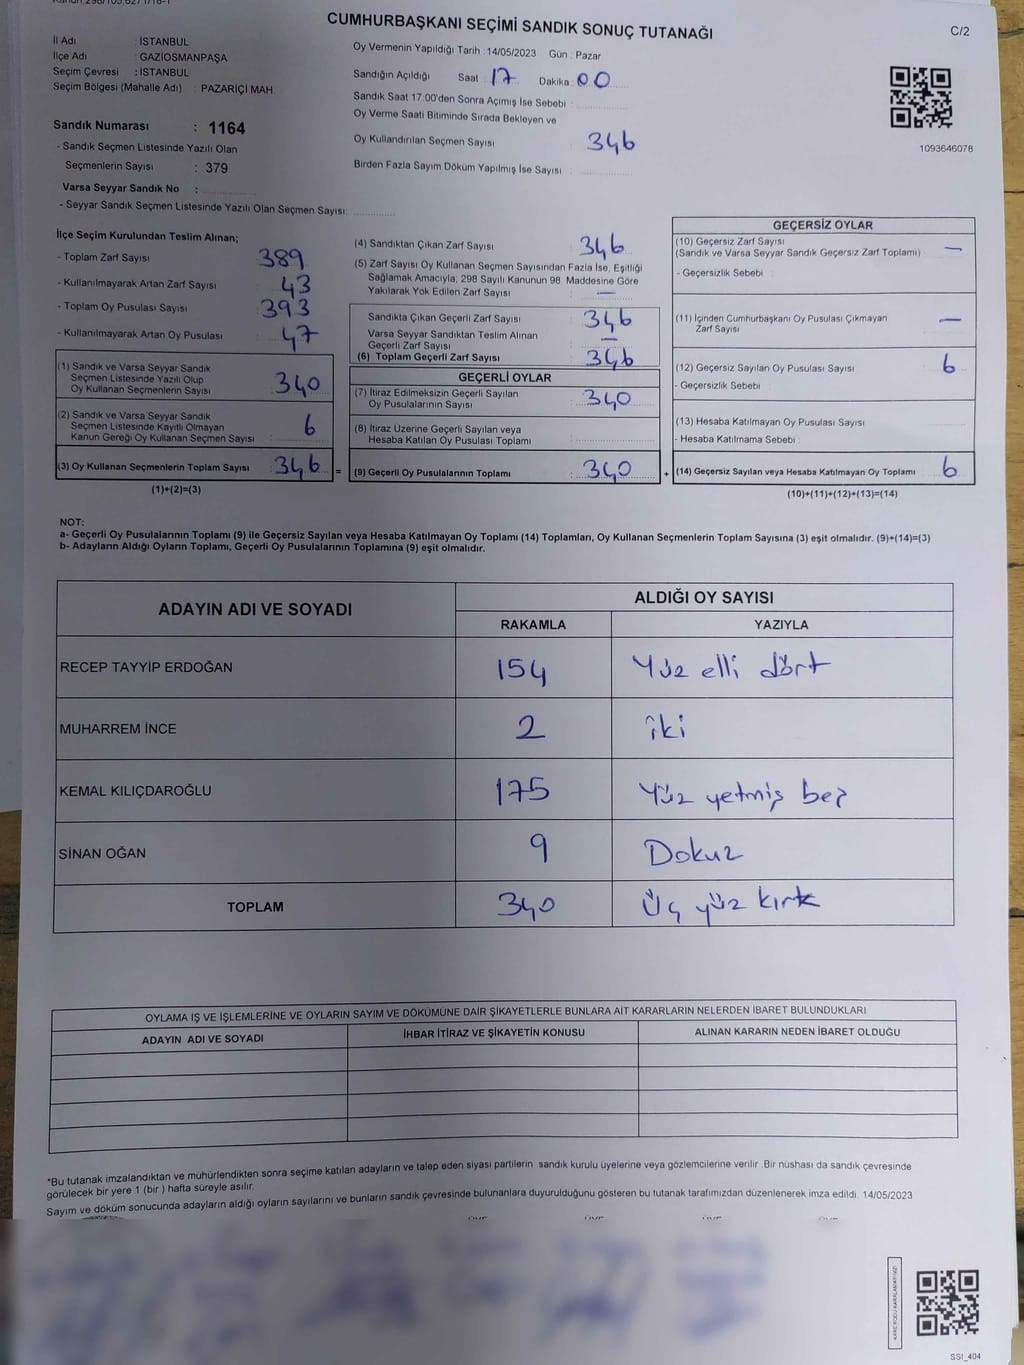 CUMHURBAŞKANI SEÇİMİ SANDIK SONUÇ TUTANAĞI
C/2
İl Adı : İSTANBUL
İlçe Adı : GAZİOSMANPAŞA
Seçim Çevresi : İSTANBUL
Seçim Bölgesi (Mahalle Adı) : PAZARİÇİ MAH.
Sandık Numarası : 1164
- Sandık Seçmen Listesinde Yazılı Olan
Seçmenlerin Sayısı : 379
Varsa Seyyar Sandık No :
- Seyyar Sandık Seçmen Listesinde Yazılı Olan Seçmen Sayısı:
Oy Vermenin Yapıldığı Tarih : 14/05/2023 Gün : Pazar
Sandığın Açıldığı Saat : 17 Dakika : 00
Sandık Saat 17:00'den Sonra Açımış İse Sebebi :
Oy Verme Saati Bitiminde Sırada Bekleyen ve
Oy Kullandırılan Seçmen Sayısı : 346
Birden Fazla Sayım Döküm Yapılmış İse Sayısı :
1093646078
İlçe Seçim Kurulundan Teslim Alınan;
- Toplam Zarf Sayısı : 389
- Kullanılmayarak Artan Zarf Sayısı : 43
- Toplam Oy Pusulası Sayısı : 393
- Kullanılmayarak Artan Oy Pusulası : 47
(1) Sandık ve Varsa Seyyar Sandık
Seçmen Listesinde Yazılı Olup
Oy Kullanan Seçmenlerin Sayısı : 340
(2) Sandık ve Varsa Seyyar Sandık
Seçmen Listesinde Kayıtlı Olmayan
Kanun Gereği Oy Kullanan Seçmen Sayısı : 6
(3) Oy Kullanan Seçmenlerin Toplam Sayısı : 346 =
(1)+(2)=(3)
(4) Sandıktan Çıkan Zarf Sayısı : 346
(5) Zarf Sayısı Oy Kullanan Seçmen Sayısından Fazla İse, Eşitliği
Sağlamak Amacıyla; 298 Sayılı Kanunun 98. Maddesine Göre
Yakılarak Yok Edilen Zarf Sayısı : —
Sandıkta Çıkan Geçerli Zarf Sayısı : 346
Varsa Seyyar Sandıktan Teslim Alınan
Geçerli Zarf Sayısı : —
(6) Toplam Geçerli Zarf Sayısı : 346
GEÇERLİ OYLAR
(7) İtiraz Edilmeksizin Geçerli Sayılan
Oy Pusulalarının Sayısı : 340
(8) İtiraz Üzerine Geçerli Sayılan veya
Hesaba Katılan Oy Pusulası Toplamı :
(9) Geçerli Oy Pusulalarının Toplamı : 340 +
GEÇERSİZ OYLAR
(10) Geçersiz Zarf Sayısı
(Sandık ve Varsa Seyyar Sandık Geçersiz Zarf Toplamı) : —
- Geçersizlik Sebebi :
(11) İçinden Cumhurbaşkanı Oy Pusulası Çıkmayan
Zarf Sayısı : —
(12) Geçersiz Sayılan Oy Pusulası Sayısı : 6
- Geçersizlik Sebebi :
(13) Hesaba Katılmayan Oy Pusulası Sayısı :
- Hesaba Katılmama Sebebi :
(14) Geçersiz Sayılan veya Hesaba Katılmayan Oy Toplamı : 6
(10)+(11)+(12)+(13)=(14)
NOT:
a- Geçerli Oy Pusulalarının Toplamı (9) ile Geçersiz Sayılan veya Hesaba Katılmayan Oy Toplamı (14) Toplamları, Oy Kullanan Seçmenlerin Toplam Sayısına (3) eşit olmalıdır. (9)+(14)=(3)
b- Adayların Aldığı Oyların Toplamı, Geçerli Oy Pusulalarının Toplamına (9) eşit olmalıdır.
ADAYIN ADI VE SOYADI ALDIĞI OY SAYISI
RAKAMLA YAZIYLA
RECEP TAYYİP ERDOĞAN 154 Yüz elli dört
MUHARREM İNCE 2 iki
KEMAL KILIÇDAROĞLU 175 Yüz yetmiş beş
SİNAN OĞAN 9 Dokuz
TOPLAM 340 Üç yüz kırk
OYLAMA İŞ VE İŞLEMLERİNE VE OYLARIN SAYIM VE DÖKÜMÜNE DAİR ŞİKAYETLERLE BUNLARA AİT KARARLARIN NELERDEN İBARET BULUNDUKLARI
ADAYIN ADI VE SOYADI İHBAR İTİRAZ VE ŞİKAYETİN KONUSU ALINAN KARARIN NEDEN İBARET OLDUĞU
*Bu tutanak imzalandıktan ve mühürlendikten sonra seçime katılan adayların ve talep eden siyasi partilerin sandık kurulu üyelerine veya gözlemcilerine verilir. Bir nüshası da sandık çevresinde
görülecek bir yere 1 (bir ) hafta süreyle asılır.
Sayım ve döküm sonucunda adayların aldığı oyların sayılarını ve bunların sandık çevresinde bulunanlara duyurulduğunu gösteren bu tutanak tarafımızdan düzenlenerek imza edildi. 14/05/2023
SSI_404